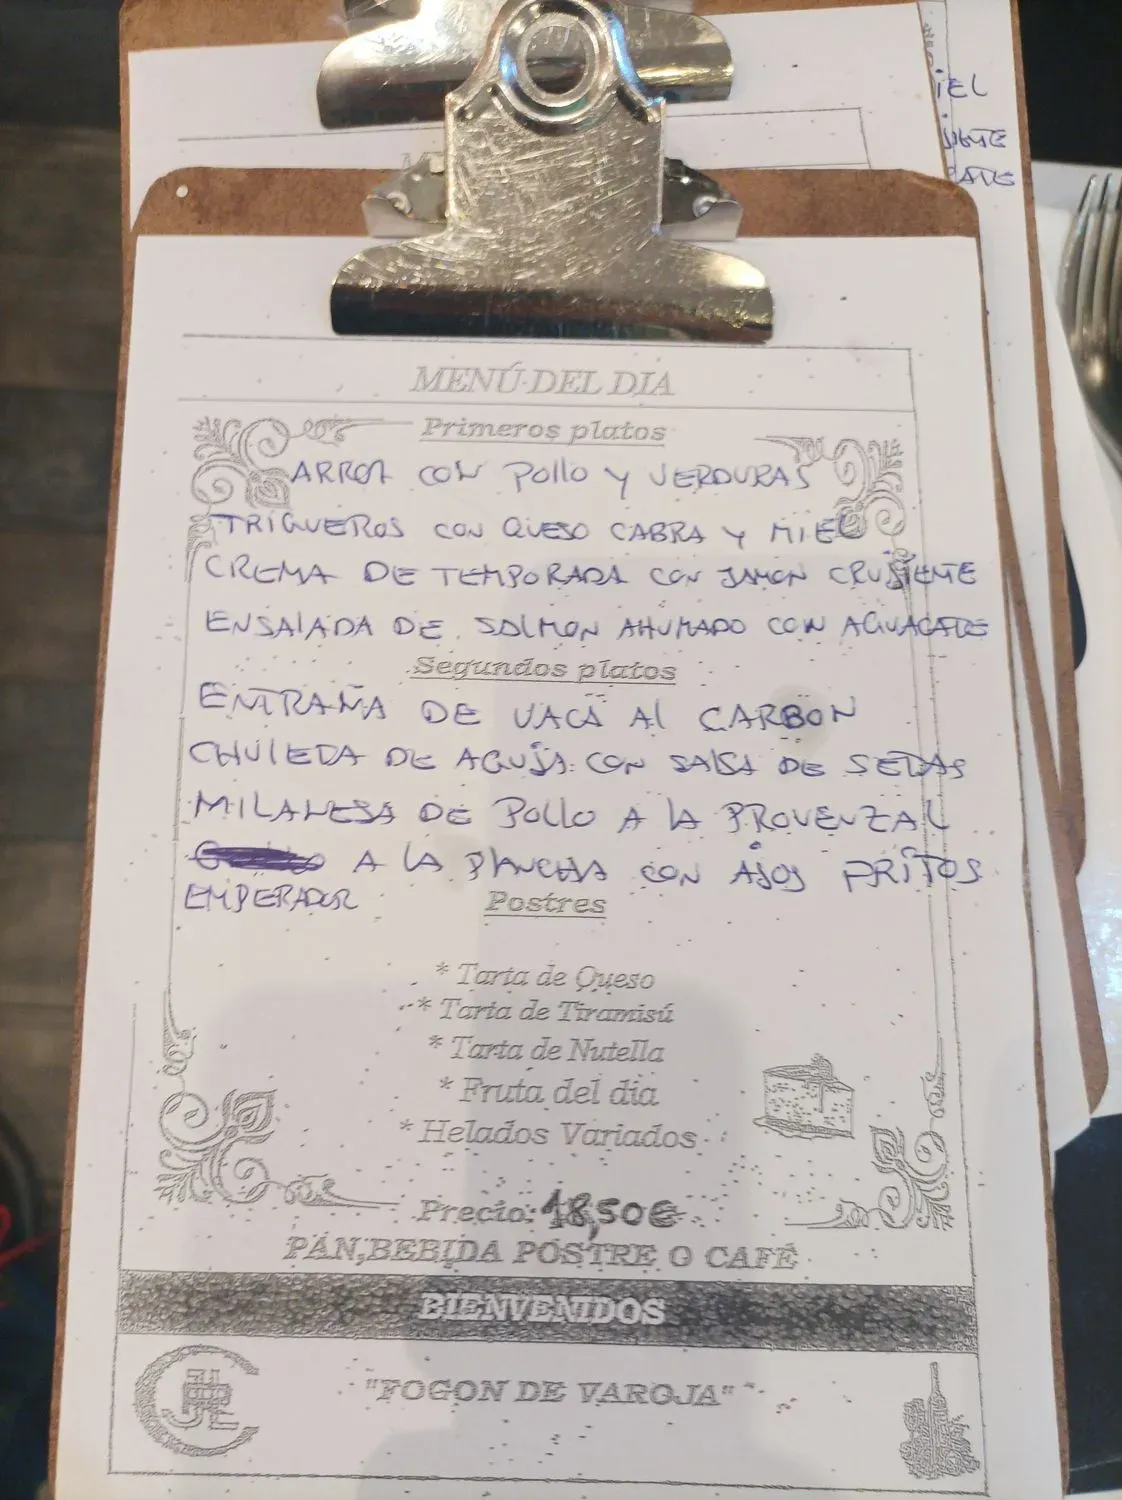 iEL
MENÚ DEL DIA
Primeros platos
ARROZ CON POLLO Y VERDURAS
TRIGUEROS CON QUESO CABRA Y MIEL
CREMA DE TEMPORADA CON JAMON CRUJIENTE
ENSALADA DE SALMON AHUMADO CON AGUACATE
Segundos platos
ENTRAÑA DE VACA AL CARBON
CHULETA DE AGUJA CON SALSA DE SETAS
MILANESA DE POLLO A LA PROVENZAL
A LA PLANCHA CON AJOS FRITOS
EMPERADOR
Postres
* Tarta de Queso
* Tarta de Tiramisú
* Tarta de Nutella
* Fruta del dia
* Helados Variados
Precio: 18,50€
PAN,BEBIDA POSTRE O CAFÉ
BIENVENIDOS
"FOGON DE VAROJA"